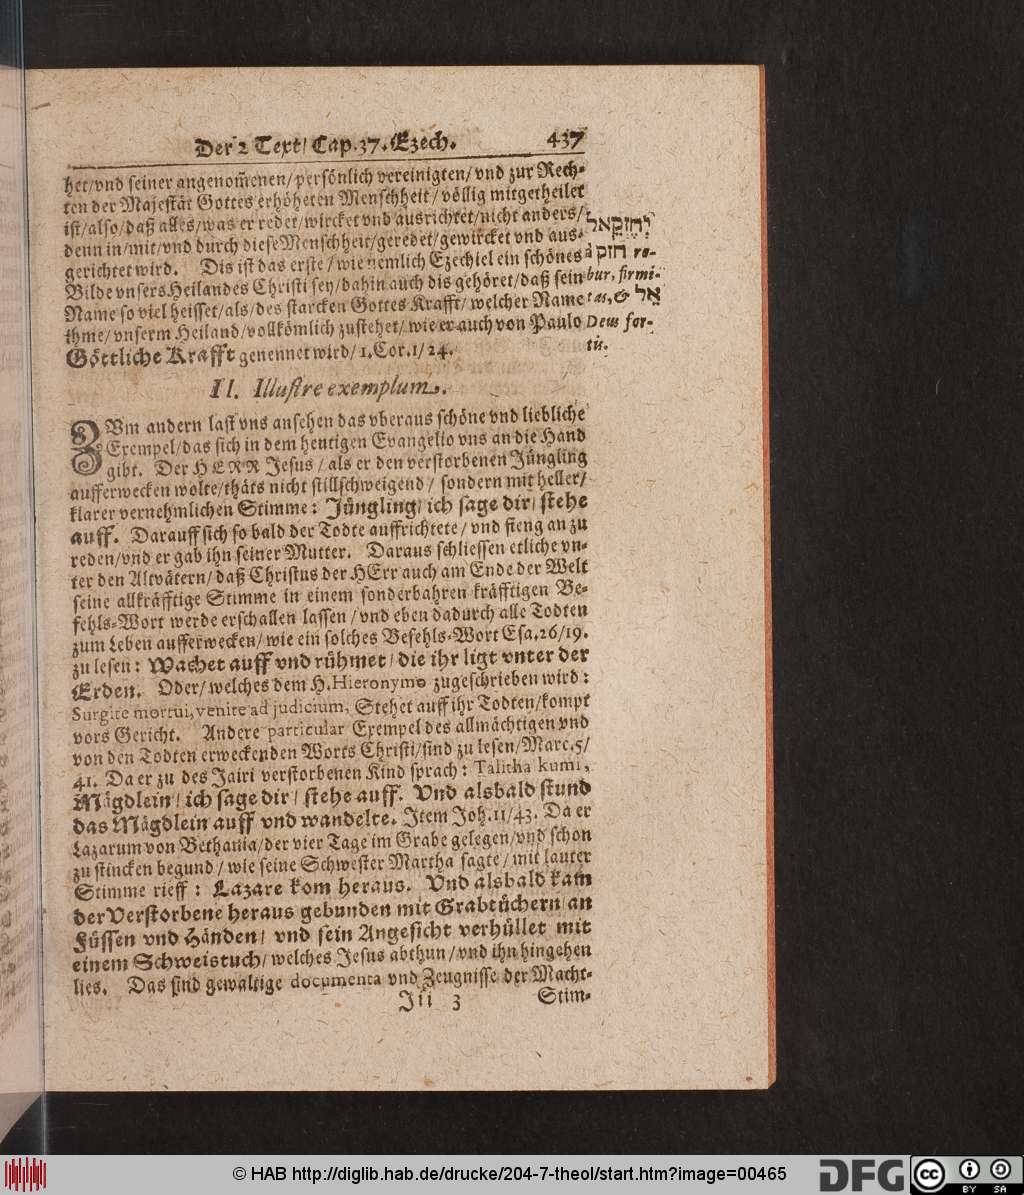 Der 2 Text/ Cap. 37. Ezech. 437
het/ vnd seiner angenom̃enen/ persönlich vereinigten/ vnd zur Rech-
ten der Majestät Gottes erhöheten Menschheit/ völlig mitgetheilet
ist/ also/ daß alles/ was er redet/ wircket vnd ausrichtet/ nicht anders/
denn in/ mit/ vnd durch diese Menschheit/ geredet/ gewircket vnd aus-
gerichtet wird. Dis ist das erste/ wie nemlich Ezechiel ein schönes
Bilde vnsers Heilandes Christi sey/ dahin auch dis gehöret/ daß sein
Name so viel heisset/ als/ des starcken Gottes Krafft/ welcher Name
thme/ vnserm Heiland/ vollkömlich zustehet/ wie er auch von Paulo
Göttliche Krafft genennet wird/ 1. Cor. 1/ 24.
יְחֶזְקֵאל
חזק ro-
bur, firmi-
tas, & אֵל
Deus for-
tis.
II. Illustre exemplum.
ZVm andern last vns ansehen das vberaus schöne vnd liebliche
Exempel/ das sich in dem heutigen Evangelio vns an die Hand
gibt. Der HERR Jesus/ als er den verstorbenen Jüngling
aufferwecken wolte/ thäts nicht stillschweigend/ sondern mit heller/
klarer vernehmlichen Stimme: Jüngling/ ich sage dir/ stehe
auff. Darauff sich so bald der Todte auffrichtete/ vnd fieng an zu
reden/ vnd er gab ihn seiner Mutter. Daraus schliessen etliche vn-
ter den Altvätern/ daß Christus der HErr auch am Ende der Welt
seine allkräfftige Stimme in einem sonderbahren kräfftigen Be-
fehls-Wort werde erschallen lassen/ vnd eben dadurch alle Todten
zum Leben aufferwecken/ wie ein solches Befehls-Wort Esa. 26/ 19.
zu lesen: Wachet auff vnd rühmet/ die ihr ligt vnter der
Erden. Oder/ welches dem H. Hieronymo zugeschrieben wird:
Surgite mortui, venite ad judicium, Stehet auff ihr Todten/ kompt
vors Gericht. Andere particular Exempel des allmächtigen vnd
von den Todten erweckenden Worts Christi/ sind zu lesen/ Marc. 5/
41. Da er zu des Jairi verstorbenen Kind sprach: Talitha kumi,
Mägdlein/ ich sage dir/ stehe auff. Vnd alsbald stund
das Mägdlein auff vnd wandelte. Item Joh. 11/ 43. Da er
Lazarum von Bethania/ der vier Tage im Grabe gelegen/ vnd schon
zu stincken begund/ wie seine Schwester Martha sagte/ mit lauter
Stimme rieff: Lazare kom heraus. Vnd alsbald kam
der Verstorbene heraus gebunden mit Grabtüchern/ an
Füssen vnd Händen/ vnd sein Angesicht verhüllet mit
einem Schweistuch/ welches Jesus abthun/ vnd ihn hingehen
lies. Das sind gewaltige documenta vnd Zeugnisse der Macht-
Jii 3 Stim-
© HAB http://diglib.hab.de/drucke/204-7-theol/start.htm?image=00465
DFG
cc BY SA